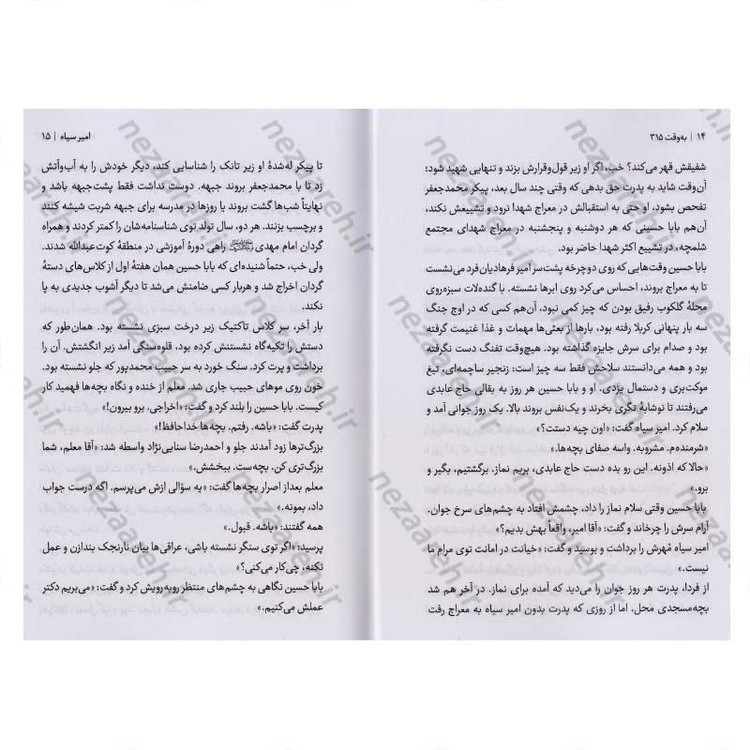 ۱۴ | به‌وقت ۳۱۵
شفیقش قهر می‌کند؟ خب، اگر او زیر قول‌وقرارش بزند و تنهایی شهید شود؛
آن‌وقت شاید به پدرت حق بدهی که وقتی چند سال بعد، پیکر محمدجعفر
تفحص بشود، او حتی به استقبالش در معراج شهدا نرود و تشییعش نکند،
آن‌هم بابا حسینی که هر دوشنبه و پنجشنبه در معراج شهدای مجتمع
شلمچه، در تشییع اکثر شهدا حاضر بود.
بابا حسین وقت‌هایی که روی دوچرخه پشت‌سر امیر فرهادیان‌فرد می‌نشست
تا به معراج بروند، احساس می‌کرد روی ابرها نشسته. با گنده‌لات سبزه‌روی
محلهٔ گلکوب رفیق بودن که چیز کمی نبود، آن‌هم کسی که در اوج جنگ
سه بار پنهانی کربلا رفته بود، بارها از بعثی‌ها مهمات و غذا غنیمت گرفته
بود و صدام برای سرش جایزه گذاشته بود. هیچ‌وقت تفنگ دست نگرفته
بود و همه می‌دانستند سلاحش فقط سه چیز است: زنجیر ساچمه‌ای، تیغ
موکت‌بری و دستمال یزدی. او و بابا حسین هر روز به بقالی حاج عابدی
می‌رفتند تا نوشابهٔ تگری بخرند و یک‌نفس بروند بالا. یک روز جوانی آمد و
سلام کرد. امیر سیاه گفت: «اون چیه دستت؟»
«شرمنده‌م. مشروبه. واسه صفای بچه‌ها.»
«حالا که اذونه. این رو بده دست حاج عابدی، بریم نماز. برگشتیم، بگیر و
برو.»
بابا حسین وقتی سلام نماز را داد، چشمش افتاد به چشم‌های سرخ جوان.
آرام سرش را چرخاند و گفت: «آقا امیر، واقعاً بهش بدیم؟»
امیر سیاه مُهرش را برداشت و بوسید و گفت: «خیانت در امانت توی مرام ما
نیست.»
از فردا، پدرت هر روز جوان را می‌دید که آمده برای نماز. در آخر هم شد
بچه‌مسجدی محل. اما از روزی که پدرت بدون امیر سیاه به معراج رفت
امیر سیاه | ۱۵
تا پیکر له‌شدهٔ او زیر تانک را شناسایی کند، دیگر خودش را به آب‌وآتش
زد تا با محمدجعفر بروند جبهه. دوست نداشت فقط پشت‌جبهه باشد و
نهایتاً شب‌ها گشت بروند یا روزها در مدرسه برای جبهه شربت شیشه کنند
و برچسب بزنند. هر دو، سال تولد توی شناسنامه‌شان را کمتر کردند و همراه
گردان امام مهدی راهی دورهٔ آموزشی در منطقهٔ کوت‌عبدالله شدند.
ولی خب، حتماً شنیده‌ای که بابا حسین همان هفتهٔ اول از کلاس‌های دستهٔ
گردان اخراج شد و هربار کسی ضامنش می‌شد تا دیگر آشوب جدیدی به پا
نکند.
بار آخر، سر کلاس تاکتیک زیر درخت سبزی نشسته بود. همان‌طور که
دستش را تکیه‌گاه نشستنش کرده بود، قلوه‌سنگی آمد زیر انگشتش. آن را
برداشت و پرت کرد. سنگ خورد به سر حبیب محمدپور که جلو نشسته بود.
خون روی موهای حبیب جاری شد. معلم از خنده و نگاه بچه‌ها فهمید کار
کیست. بابا حسین را بلند کرد و گفت: «اخراجی. برو بیرون!»
پدرت گفت: «باشه. رفتم. بچه‌ها خداحافظ!»
بزرگ‌ترها زود آمدند جلو و احمدرضا سنایی‌نژاد واسطه شد: «آقا معلم، شما
بزرگ‌تری کن. بچه‌ست. ببخشش.»
معلم بعداز اصرار بچه‌ها گفت: «یه سؤالی ازش می‌پرسم. اگه درست جواب
داد، بمونه.»
همه گفتند: «باشه. قبول.»
پرسید: «اگر توی سنگر نشسته باشی، عراقی‌ها بیان نارنجک بندازن و عمل
نکنه، چی‌کار می‌کنی؟»
بابا حسین نگاهی به چشم‌های منتظر روبه‌رویش کرد و گفت: «می‌بریم دکتر
عملش می‌کنیم.»
nezaareh.ir
nezaareh.ir
nezaareh.ir
nezaareh.ir
nezaareh.ir
nezaareh.ir